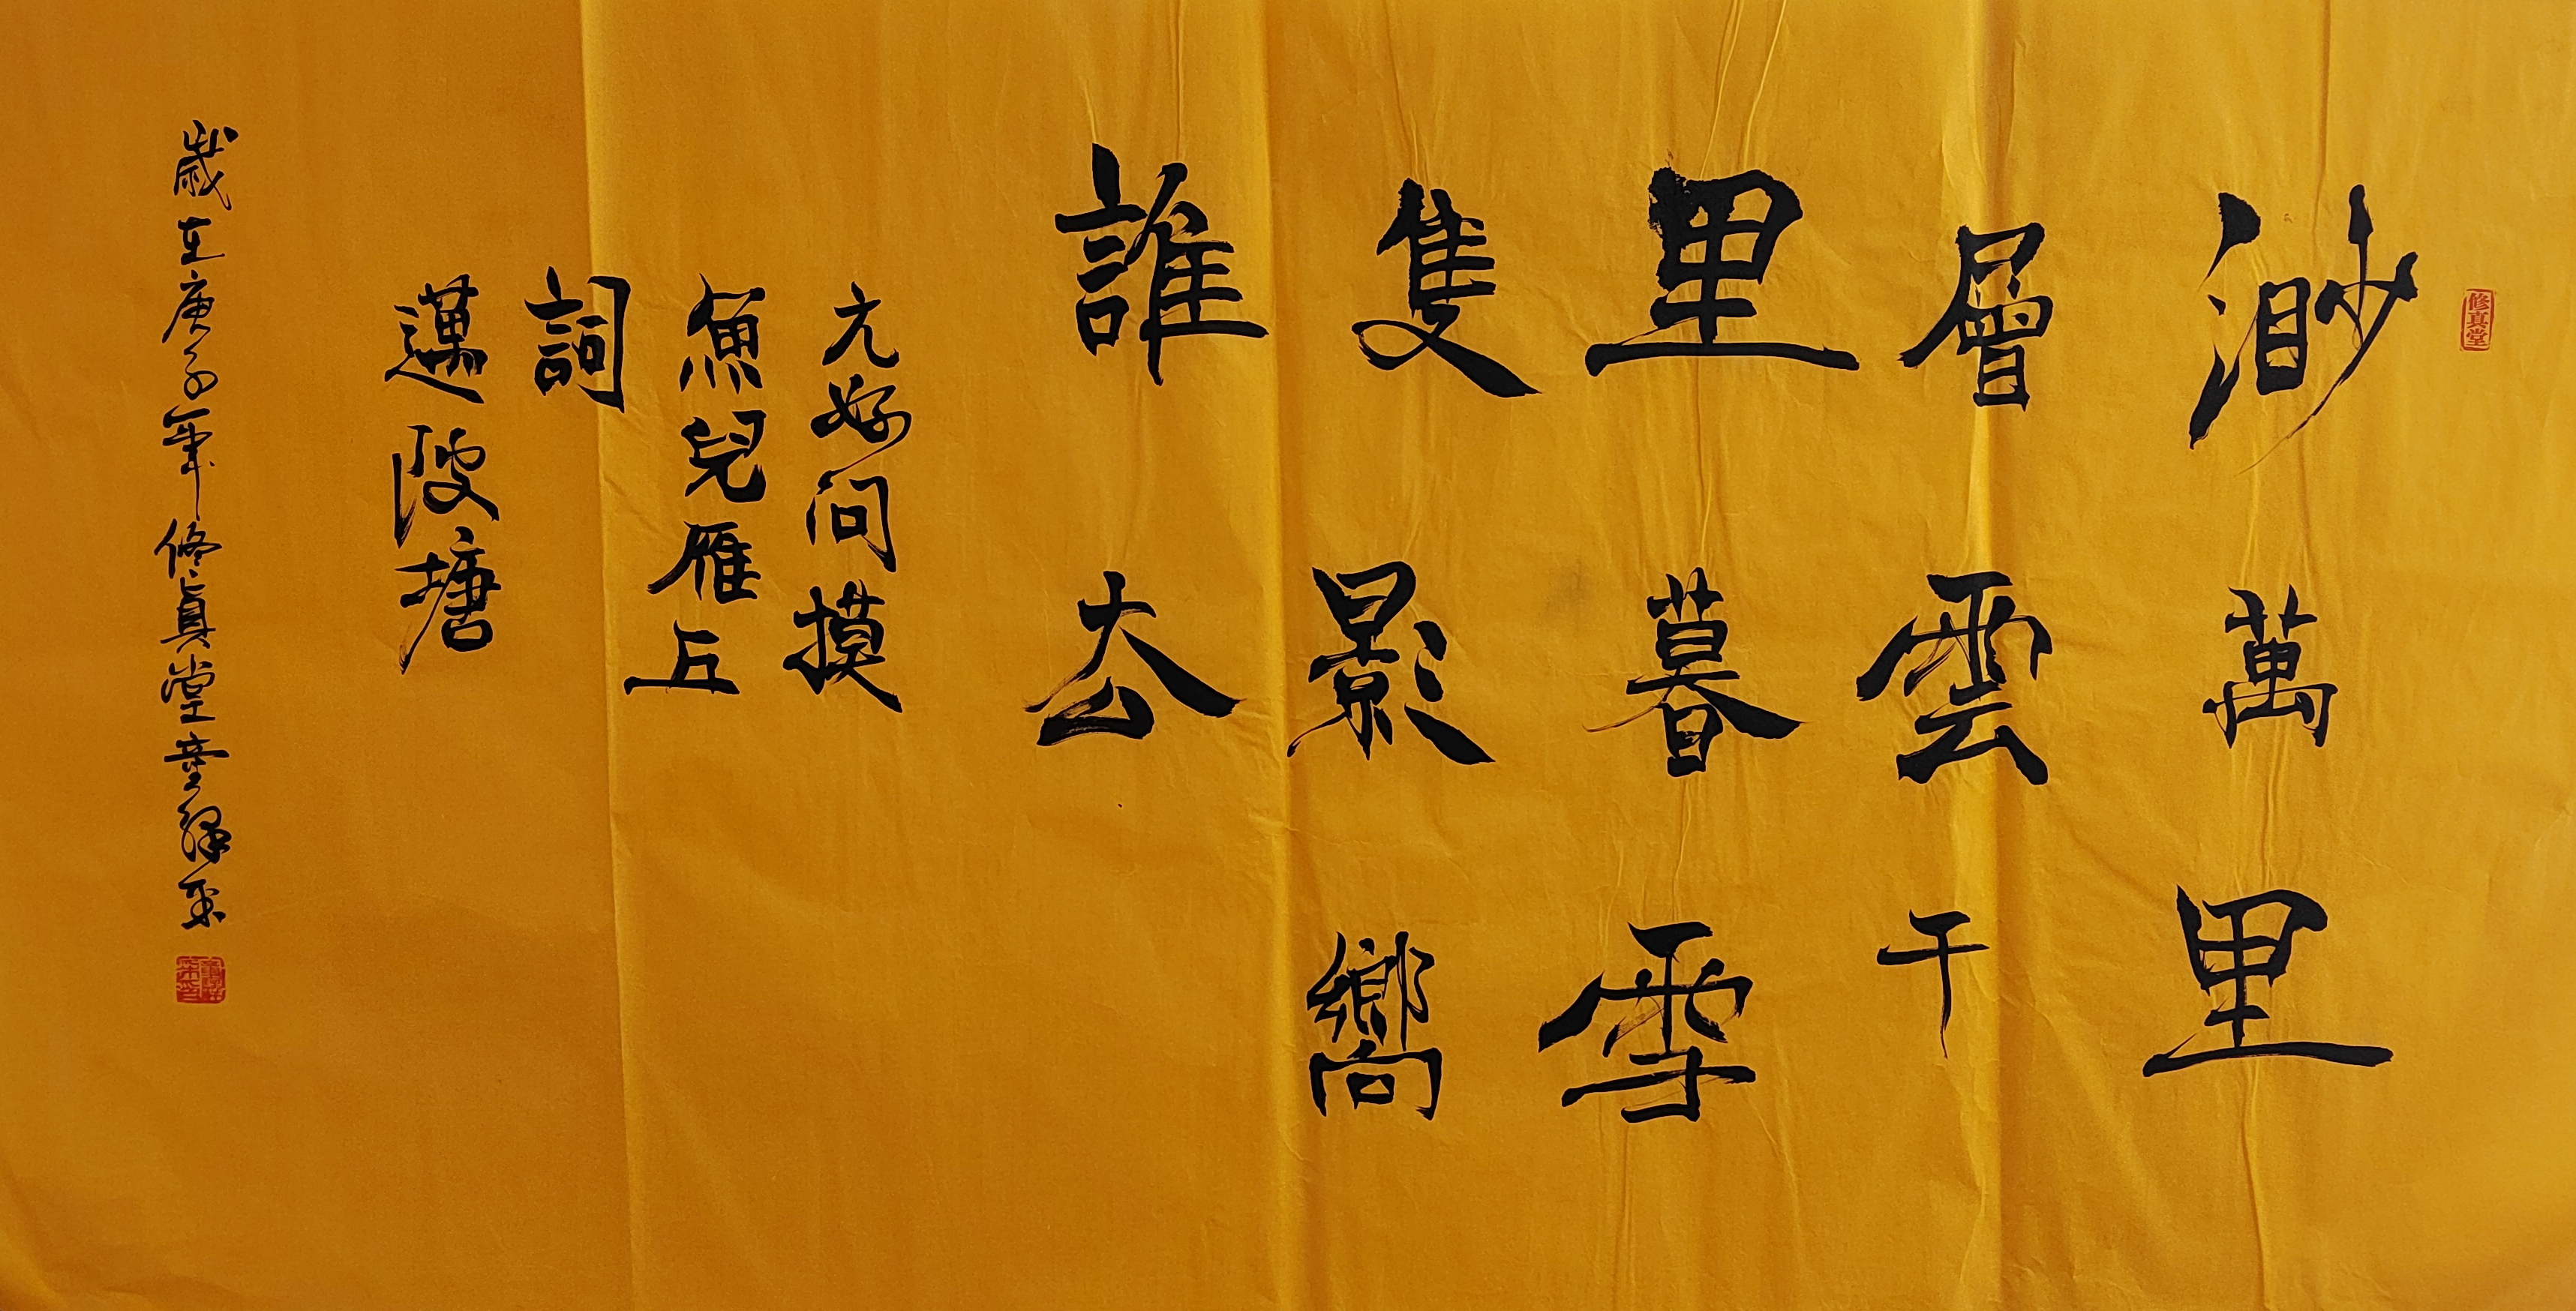 修真堂
渺萬里
層雲千
里暮雪
隻影嚮
誰去
元好问摸
魚兒雁丘
詞
邁陂塘
歲在庚子年修真堂童